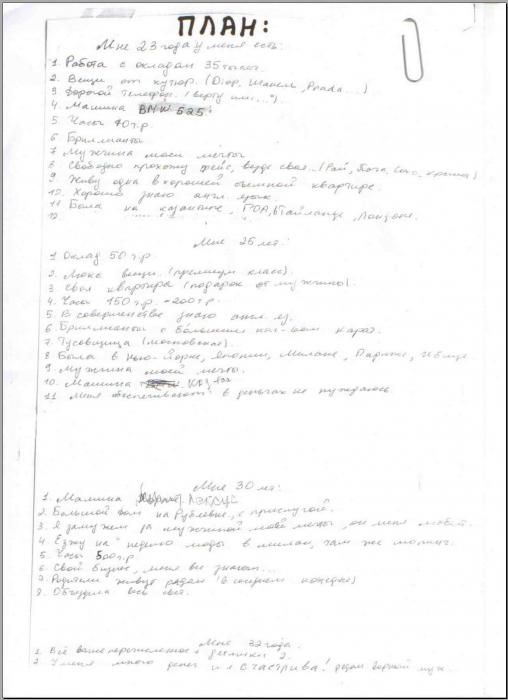 ПЛАН:
Мне 23 года у меня есть:
1. Работа с окладом 35 тысяч.
2. Вещи от кутюр. (Диор, Шанель, Prada....)
3 Дорогой телефон. (верту или....")
4. Машина BMW 525i
5 Часы 70 т.р
6 Бриллианты
7 Мужчина моей мечты
8 Свободно прохожу фейс, везде своя..(Рай,
9 Живу одна в хорошей съемной квартире.
10. Хорошо знаю англ. язык.
11 Была на казантипе, ГОА, Тайланде, Лондоне.
12
Мне 25 лет:
1 Оклад 50 т.р.
2. Люкс вещи. (премиум класс).
3 Своя квартира (подарок от мужчины).
4. Часы 150 т.р. -200 т.р.
5. В совершенстве знаю англ. яз.
6. Бриллианты с большим кол-вом карат.
7. Тусовщица (московская).
8 Была в Нью-Йорке, Японии, Милане, Париже,
9 Мужчина моей мечты.
10. Машина
11 Меня обеспечивают в деньгах не нуждаюсь
Мне 30 лет:
1. Машина
2. Большой дом на Рублевке, с прислугой.
3. Я замужем за мужчиной моей мечты, он меня любит.
4 Езжу на неделю моды в милан, там же
5. Часы 500 т.р
6 Свой бизнес, меня все знают...
7. Родители живут рядом (в соседнем коттедже)
8. Объездила весь свет.
Мне 32 года.
1. Всё вышеперечисленное +
2 У меня много денег и я счастлива! рядом